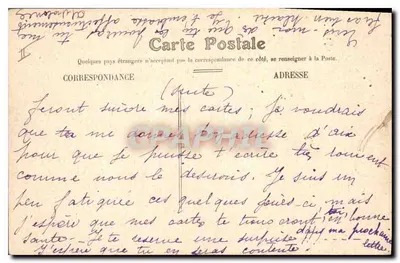 Carte Postale
Quelques pays étrangers n'acceptent pas la correspondance de ce côté, se renseigner à la Poste.
CORRESPONDANCE
ADRESSE
(suite)
feront suivre mes cartes; Je voudrais
que tu me donnes ton adresse d'aix
pour que je puisse t'écrire très souvent
comme nous le desirons. Je suis un
peu fatiguée ces quelques jours-ci, mais
j'espère que mes cartes te trouveront, toi, en bonne
santé. Je te reserve une surprise dans ma prochaine lettre.
J'espère que tu en seras contente.
II